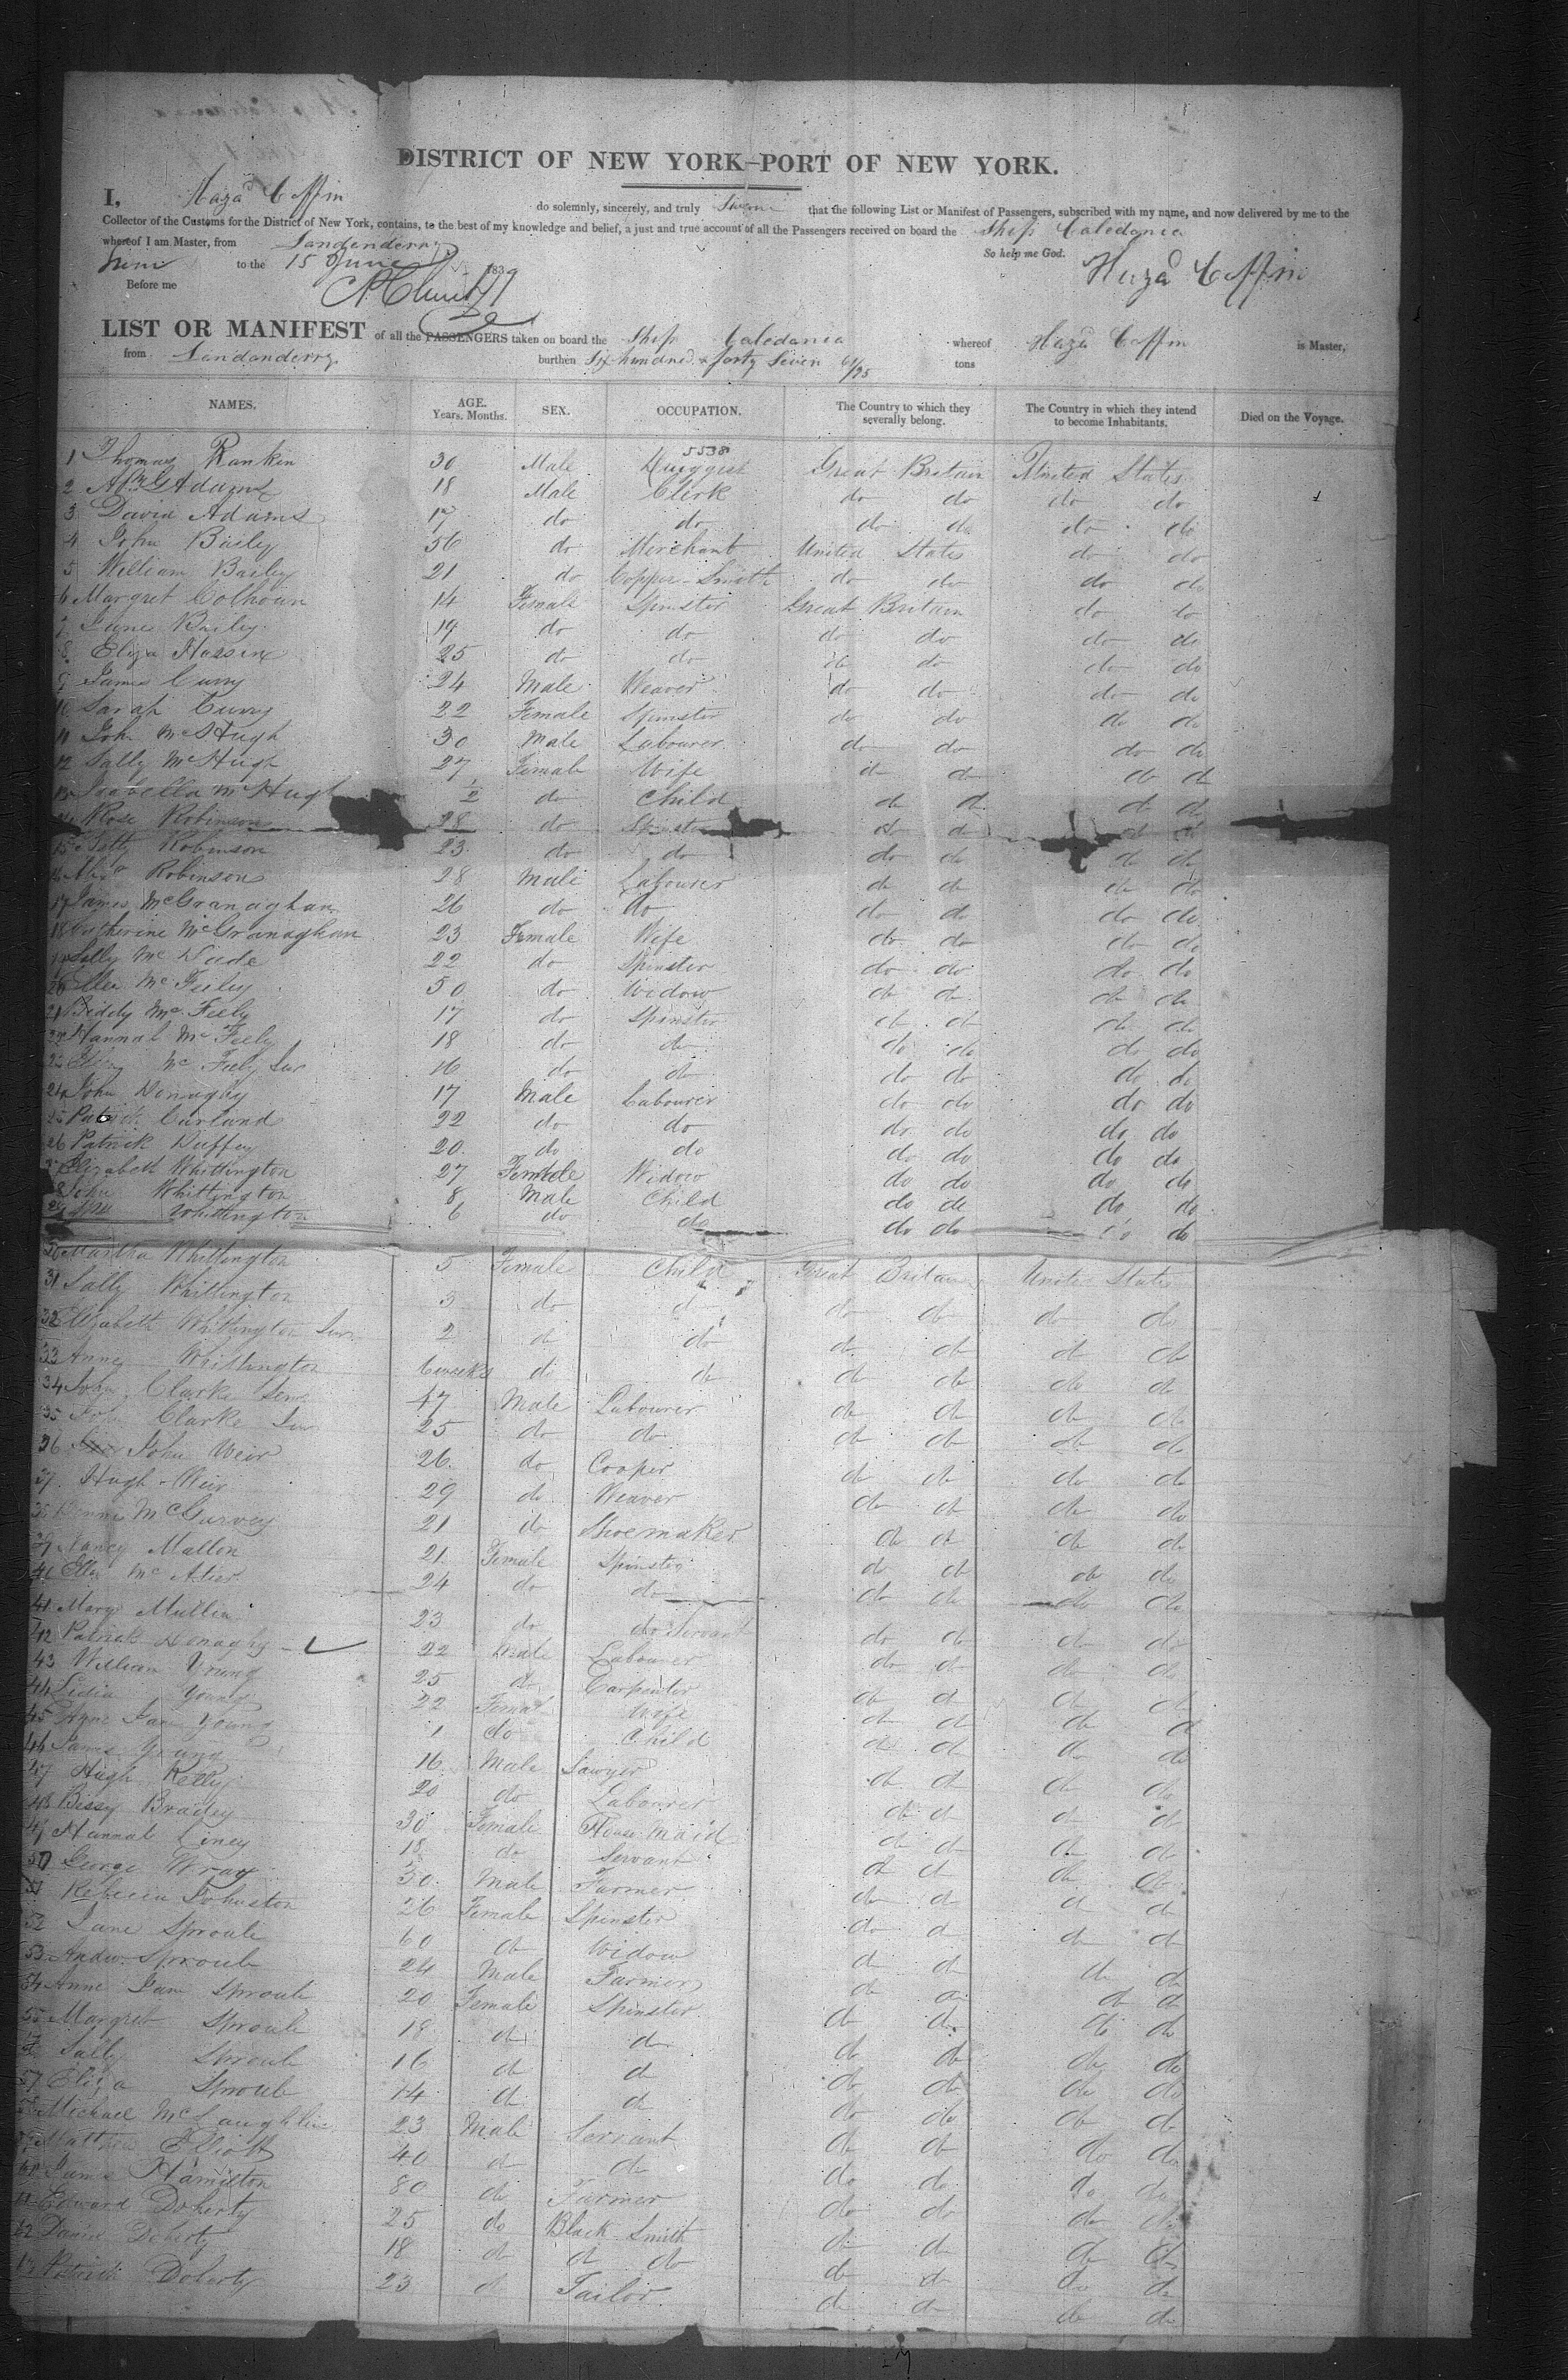 DISTRICT OF NEW YORK–PORT OF NEW YORK.
I, Hazd Coffin do solemnly, sincerely, and truly Swear that the following List or Manifest of Passengers, subscribed with my name, and now delivered by me to the
Collector of the Customs for the District of New York, contains, to the best of my knowledge and belief, a just and true account of all the Passengers received on board the Ship Caledonia
whereof I am Master, from Londonderry So help me God.
to the 15 June 1839 Hazd Coffin
Before me
LIST OR MANIFEST of all the PASSENGERS taken on board the Ship Caledonia whereof Hazd Coffin is Master,
from Londonderry burthen Six hundred & forty Seven 61/95 tons
NAMES. AGE. Years. Months. SEX. OCCUPATION. The Country to which they severally belong. The Country in which they intend to become Inhabitants. Died on the Voyage.
5538
1 Thomas Rankin 30 Male Druggist Great Britain United States
2 Adams 18 Male Clerk do do do do
3 David Adams 17 do do do do do do
4 John Baily 56 do Merchant United States do do
5 William Baily 21 do Copper-Smith do do do do
6 Margret Colhoun 14 Female Spinster Great Britain do do
7 Jane Baily 19 do do do do do do
8 Eliza 25 do do do do do do
9 James Curry 24 Male Weaver do do do do
10 Sarah Curry 22 Female Spinster do do do do
11 John McHugh 30 Male Labourer do do do do
12 Sally McHugh 27 Female Wife do do do do
13 Isabella McHugh 2 do Child do do do do
14 Rose Robinson 28 do Spinster do do do do
15 Robinson 23 do do do do do do
16 Robinson 28 Male Labourer do do do do
17 James McGranaghan 26 do do do do do do
18 Catherine McGranaghan 23 Female Wife do do do do
19 Sally Mc Dade 22 do Spinster do do do do
20 Ellen McFeely 50 do Widow do do do do
21 Biddy McFeely 17 do Spinster do do do do
22 Hannah McFeely 18 do do do do do do
23 McFeely Jur 16 do do do do do do
24 John Donaghy 17 Male Labourer do do do do
25 Patrick Carland 22 do do do do do do
26 Patrick Duffey 20 do do do do do do
27 Elizabeth Whittington 27 Female Widow do do do do
28 John Whittington 8 Male Child do do do do
29 Whittington 6 do do do do do do
30 Martha Whittington 5 Female Child Great Britain United States
31 Sally Whittington 3 do do do do do do
32 Elizabeth Whittington Jur 2 do do do do do do
33 Anne Whittington 6 weeks do do do do do do
34 John Clarke Senr 47 Male Labourer do do do do
35 John Clarke Jur 25 do do do do do do
36 John Weir 26 do Cooper do do do do
37 Hugh Weir 29 do Weaver do do do do
38 McGurvey 21 do Shoemaker do do do do
39 Nancy Mallon 21 Female Spinster do do do do
40 Ellen Mc Ateer 24 do do do do do do
41 Mary Mullin 23 do do Servant do do do do
42 Patrick Donaghy 22 Male Labourer do do do do
43 William Young 25 do Carpenter do do do do
44 Lidia Young 22 Female Wife do do do do
45 Jane Young 1 do Child do do do do
46 James Young 16 Male Sawyer do do do do
47 Hugh Kelly 20 do Labourer do do do do
48 Bissy Bradey 30 Female House Maid do do do do
49 Hannah Liney 18 do Servant do do do do
50 George Wray 30 Male Farmer do do do do
51 Rebecca Johnston 26 Female Spinster do do do do
52 Jane Sproule 60 do Widow do do do do
53 Andw. Sproule 24 Male Farmer do do do do
54 Anne Jane Sproule 20 Female Spinster do do do do
55 Margret Sproule 18 do do do do do do
56 Sally Sproule 16 do do do do do do
57 Eliza Sproule 14 do do do do do do
58 Michael McLaughlin 23 Male Servant do do do do
59 Matthew Elliott 40 do do do do do do
60 James Hamilton 80 do Farmer do do do do
61 Edward Doherty 25 do Black Smith do do do do
62 Daniel Doherty 18 do do do do do do do
63 Patrick Doherty 23 do Tailor do do do do